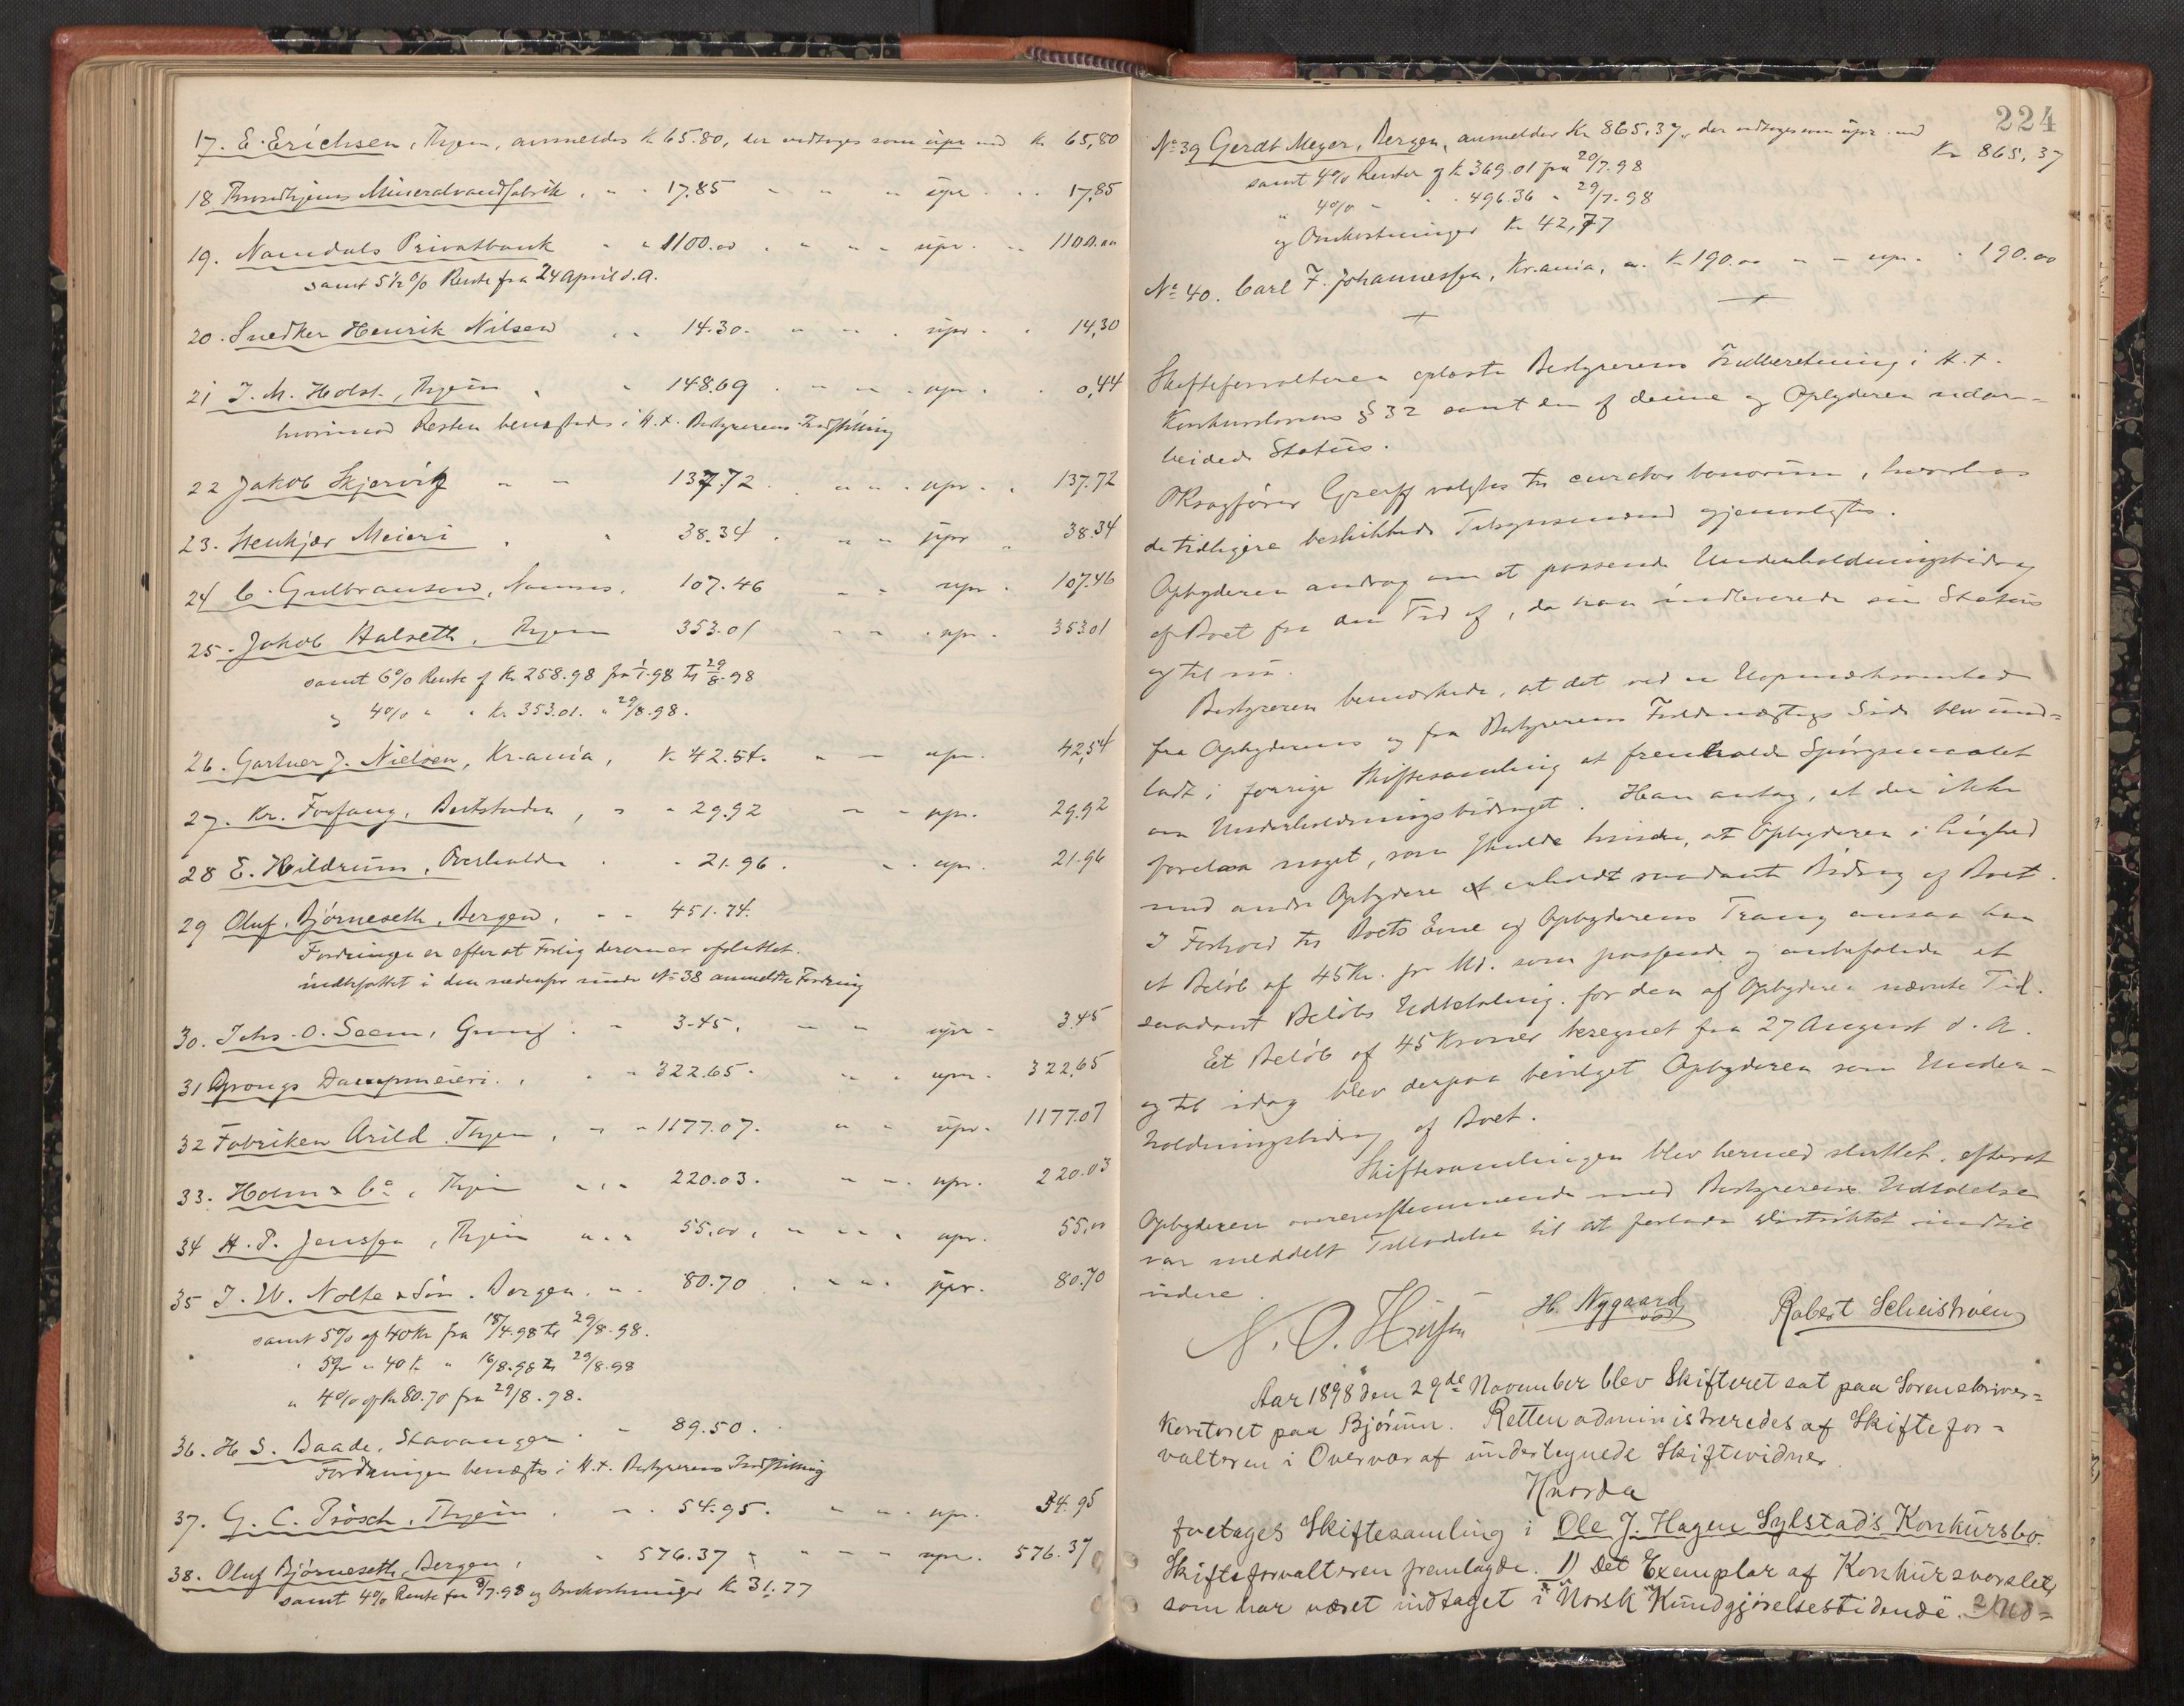 17. E. Erichsen, Thjem, anmeldes K 65.80, der vedtoges som upr med Kr 65,80
18 Throndhjems Mineralvandfabrik . " - 17,85 " " " upr . . 17,85
19. Namdals Privatbank " " 1100.00 . " " " upr . " 1100.00
samt 5 1/2 % Rente fra 24 April d.A.
20. Snedker Henrik Nilsen . . 14.30. " " . upr - . 14,30
21 J. M. Holst, Thjem " " 148.69 . " " . upr . . 0,44
hvorimod Resten benegtedes i H.t. Bestyrerens Indstilling
22 Jakob Skjervik " " 137.72 . " " . upr . . 137.72
23. Stenkjær Meieri . " 38.34 . " " upr " 38.34
24 C. Gulbransen, Namsos. 107.46 " " upr . 107.46
25. Jakob Halseth, Thjem 353.01 " " . upr . 353.01
samt 6% Rente af Kr 258.98 fra 1/1.98 til 29/8.98
og 4% " " Kr 353.01. " 29/8.98.
26. Gartner J. Nielsen, Kr.ania, K 42.54. " " upr. 42,54
27. Kr. Forfang, Beitstaden, " " 29.92 " " upr. 29.92
28 E. Hildrum, Overhalden . " 21.96 . " . upr. 21.96
29 Oluf Bjørneseth, Bergen, . " " 451.74.
Fordringen er efter at Forlig derom er afsluttet.
indbefattet i den nedenfor under No 38 anmeldte Fordring
30. Johs. O. Seem, Grong . " 3.45. " " upr - 3.45
31 Grongs Dampmeieri. , " " 322.65. " . upr. 322,65
32 Fabriken Arild Thjem, " " 1177.07. " " upr. 1177.07
33. Holm & Co, Thjem " . " 220.03. " " . upr. 220.03
34 H. P. Jenssen, Thjem " . " 55,00, " " " . upr. 55,00
35 J. W. Nolte & Søn. Bergen. " . 80.70 . " " . upr. 80.70
samt 5% af 40 Kr. fra 18/4.98 til 29/8.98.
" 5% " 40 K " 16/8.98 til 29/8.98
" 4% af Kr 80.70 fra 29/8.98.
36. H S. Baade, Stavanger . " 89.50.
Fordringen benegtes i H.t. Bestyrerens Indstilling
37. G. C. Prösch, Thjem . " . 54.95. " " . upr. 54.95
38. Oluf Bjørneseth, Bergen, " 576.37 " " " " upr. 576.37
samt 4% Rente fra 8/7.98 og Omkostninger Kr 31.77
224
No 39 Gerdt Meyer, Bergen, anmelder Kr 865,37, der vedtoges som upr. med
Kr 865,37
samt 4% Renter af K 369.01 fra 20/7.98
" 4% " . . 496.36 " 29/7.98
og Omkostninger Kr 42,77
No 40. Carl F. Johannessen, Kr.ania, a. K 190.00 " " upr. . 190.00
Skifteforvalteren oplæste Bestyrerens Indberetning i H.t.
Konkurslovens § 32 samt den af denne og Opbyderen udar=
beidede Status.
OKsagfører Greiff valgtes til curator bonorum, hvorhos
de tidligere beskikkede Tilsynsmænd gjenvalgtes.
Opbyderen androg om et passende Underholdningsbidrag
af Boet fra den Tid af, da han indleverede sin Status
og til nu.
Bestyreren bemærkede, at det ved en Uopmærksomhed
fra Opbyderens og fra Bestyrerens Fuldmægtigs Side blev und=
ladt i forrige Skiftesamling at fremholde Spørgsmaalet
om Underholdningsbidraget. Han antog, at der ikke
forelaa noget, som skulde hindre, at Opbyderen i Lighed
med andre Opbydere erholdt saadant Bidrag af Boet.
I Forhold til Boets Evne og Opbyderens Trang ansaa han
et Beløb af 45 Kr. pr Md. som passende og anbefalede et
saadant Beløbs Udbetaling for den af Opbyderen nævnte Tid.
Et Beløb af 45 Kroner beregnet fra 27 August d. A.
og til idag blev derpaa bevilget Opbyderen som Under=
holdningsbidrag af Boet.
Skiftesamlingen blev hermed sluttet, efterat
Opbyderen overensstemmende med Bestyrerens Udtalelse
var meddelt Tilladelse til at forlade Distriktet indtil
videre.
H. Nygaard Robert Scheistrøen
Aar 1898 den 29de November blev Skifteret sat paa Sorenskriver=
kontoret paa Bjørum. Retten administreredes af Skiftefor=
valteren i Overvær af undertegnede Skiftevidner.
Hvorda
foretoges Skiftesamling i Ole J. Hagen Sylstad's Konkursbo.
Skifteforvalteren fremlagde. 1) Det Exemplar af Konkursvarslet,
som har været indtaget i "Norsk Kundgjørelsestidende". 2) Ud=